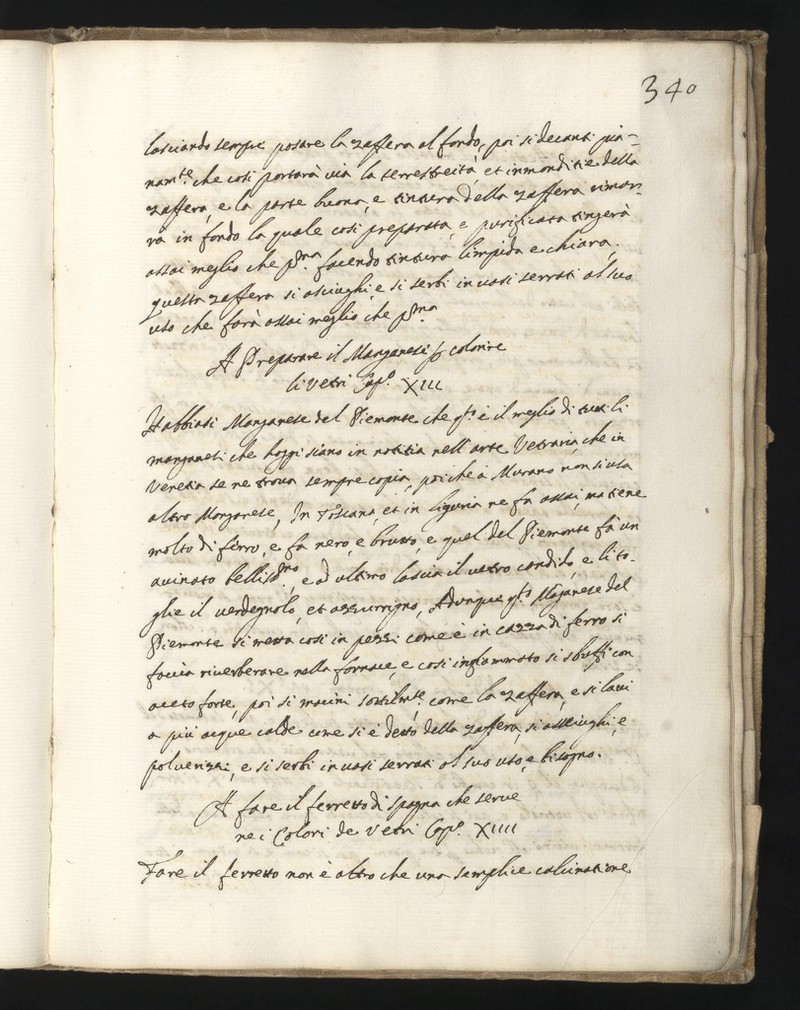 340
lasciando sempre posare la zaffera al fondo, poi si decanti pia=
namte. che così portarà via la terrestreità et inmonditie della
zaffera, e la parte buona, e tintura della zaffera riman=
rà in fondo la quale così preparata, e purificata tingerà
assai meglio che pma. facendo tintura limpida e chiara.
questa zaffera si asciughi, e si serbi in vasi serrati al suo
uso che farà assai meglio che pma.
A Preparare il Manganese p colorire
li vetri Capo. XIII
Habbiasi Manganese del Piemonte che qto è il meglio di tutti li
manganesi che hoggi siano in notitia nell'arte Vetraria, che in
Venetia se ne trova sempre copia, poiche à Murano non si usa
altro Manganese, In Toscana, et in liguria ne fa assai, ma tiene
molto di ferro, e fa nero, e brutto, e quel del Piemonte fà un
avinato bellissmo, e ad ultimo lascia il vetro candido, e li to=
glie il verdegnolo, et azzurrigno, Adunque qto Maganese del
Piemonte si metta così in pezzi come è in cazza di ferro si
faccia riverberare nella fornace, e così infiammato si sbuffi con
aceto forte, poi si macini sottilmte. come la zaffera, e si lavi
a più acque calde come si è detto della zaffera, si assciughi, e
polverizzi, e si serbi in vasi serrati al suo uso, e bisogno.
A fare il ferretto di spagna che serve
ne i Colori de Vetri Capo. XIIII
Fare il ferretto non è altro che una semplice calcinatione